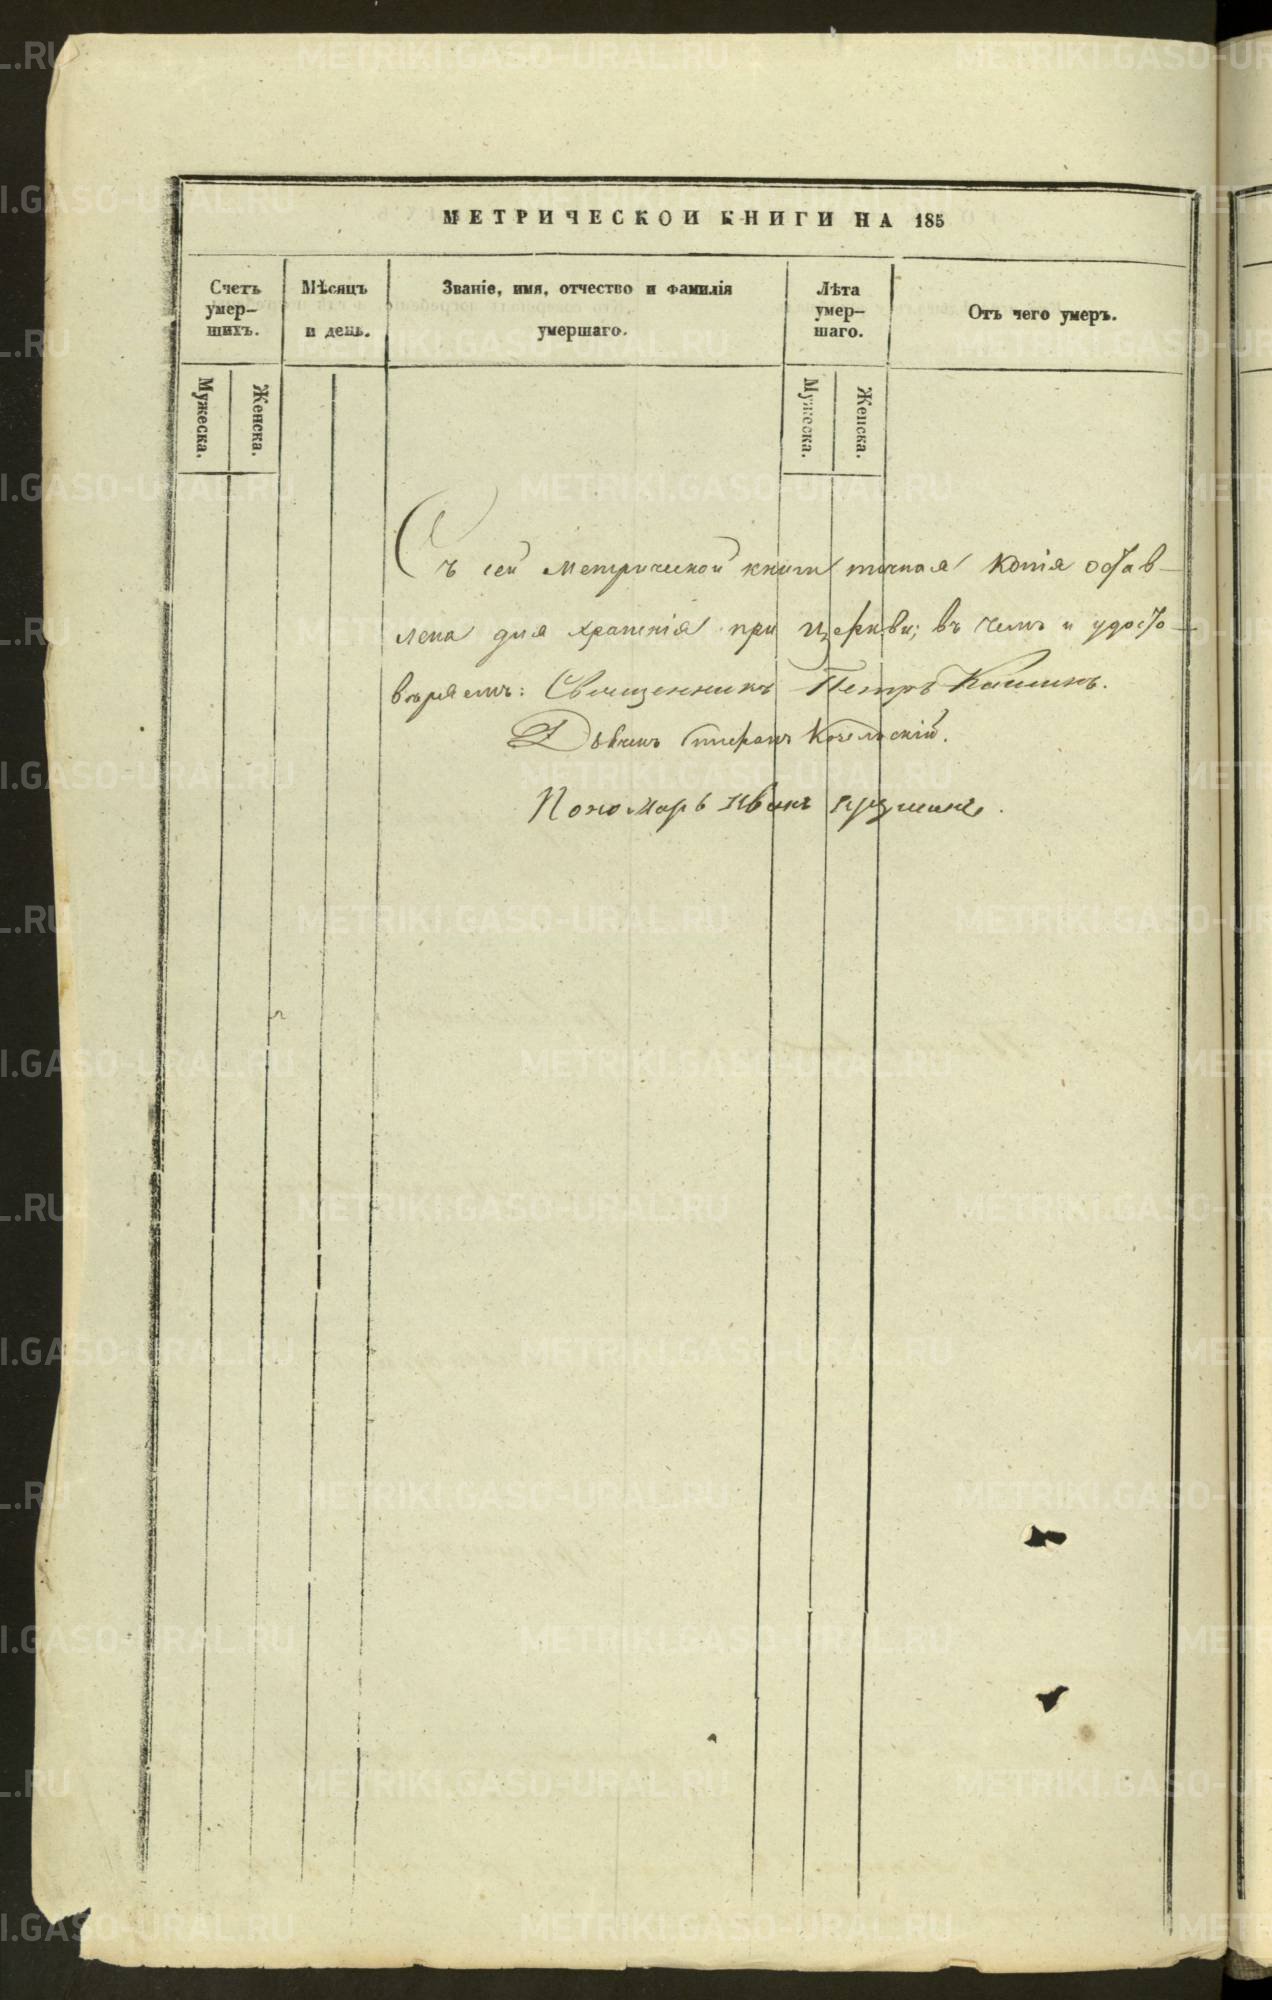 МЕТРИЧЕСКОЙ КНИГИ НА 185
Счетъ умер-
шихъ.
Мѣсяцъ
и день.
Званіе, имя, отчество и фамилія
умершаго.
Лѣта
умер-
шаго.
Отъ чего умеръ.
Мужеска.
Женска.
Мужеска.
Женска.
Съ сей метрической книги точная копія остав-
лена для храненія при церкви; въ чемъ и удосто-
вѣряемъ: Священникъ Петръ Кашинъ.
Дьячекъ Стефанъ
Пономарь Иванъ
METRIKI.GASO-URAL.RU